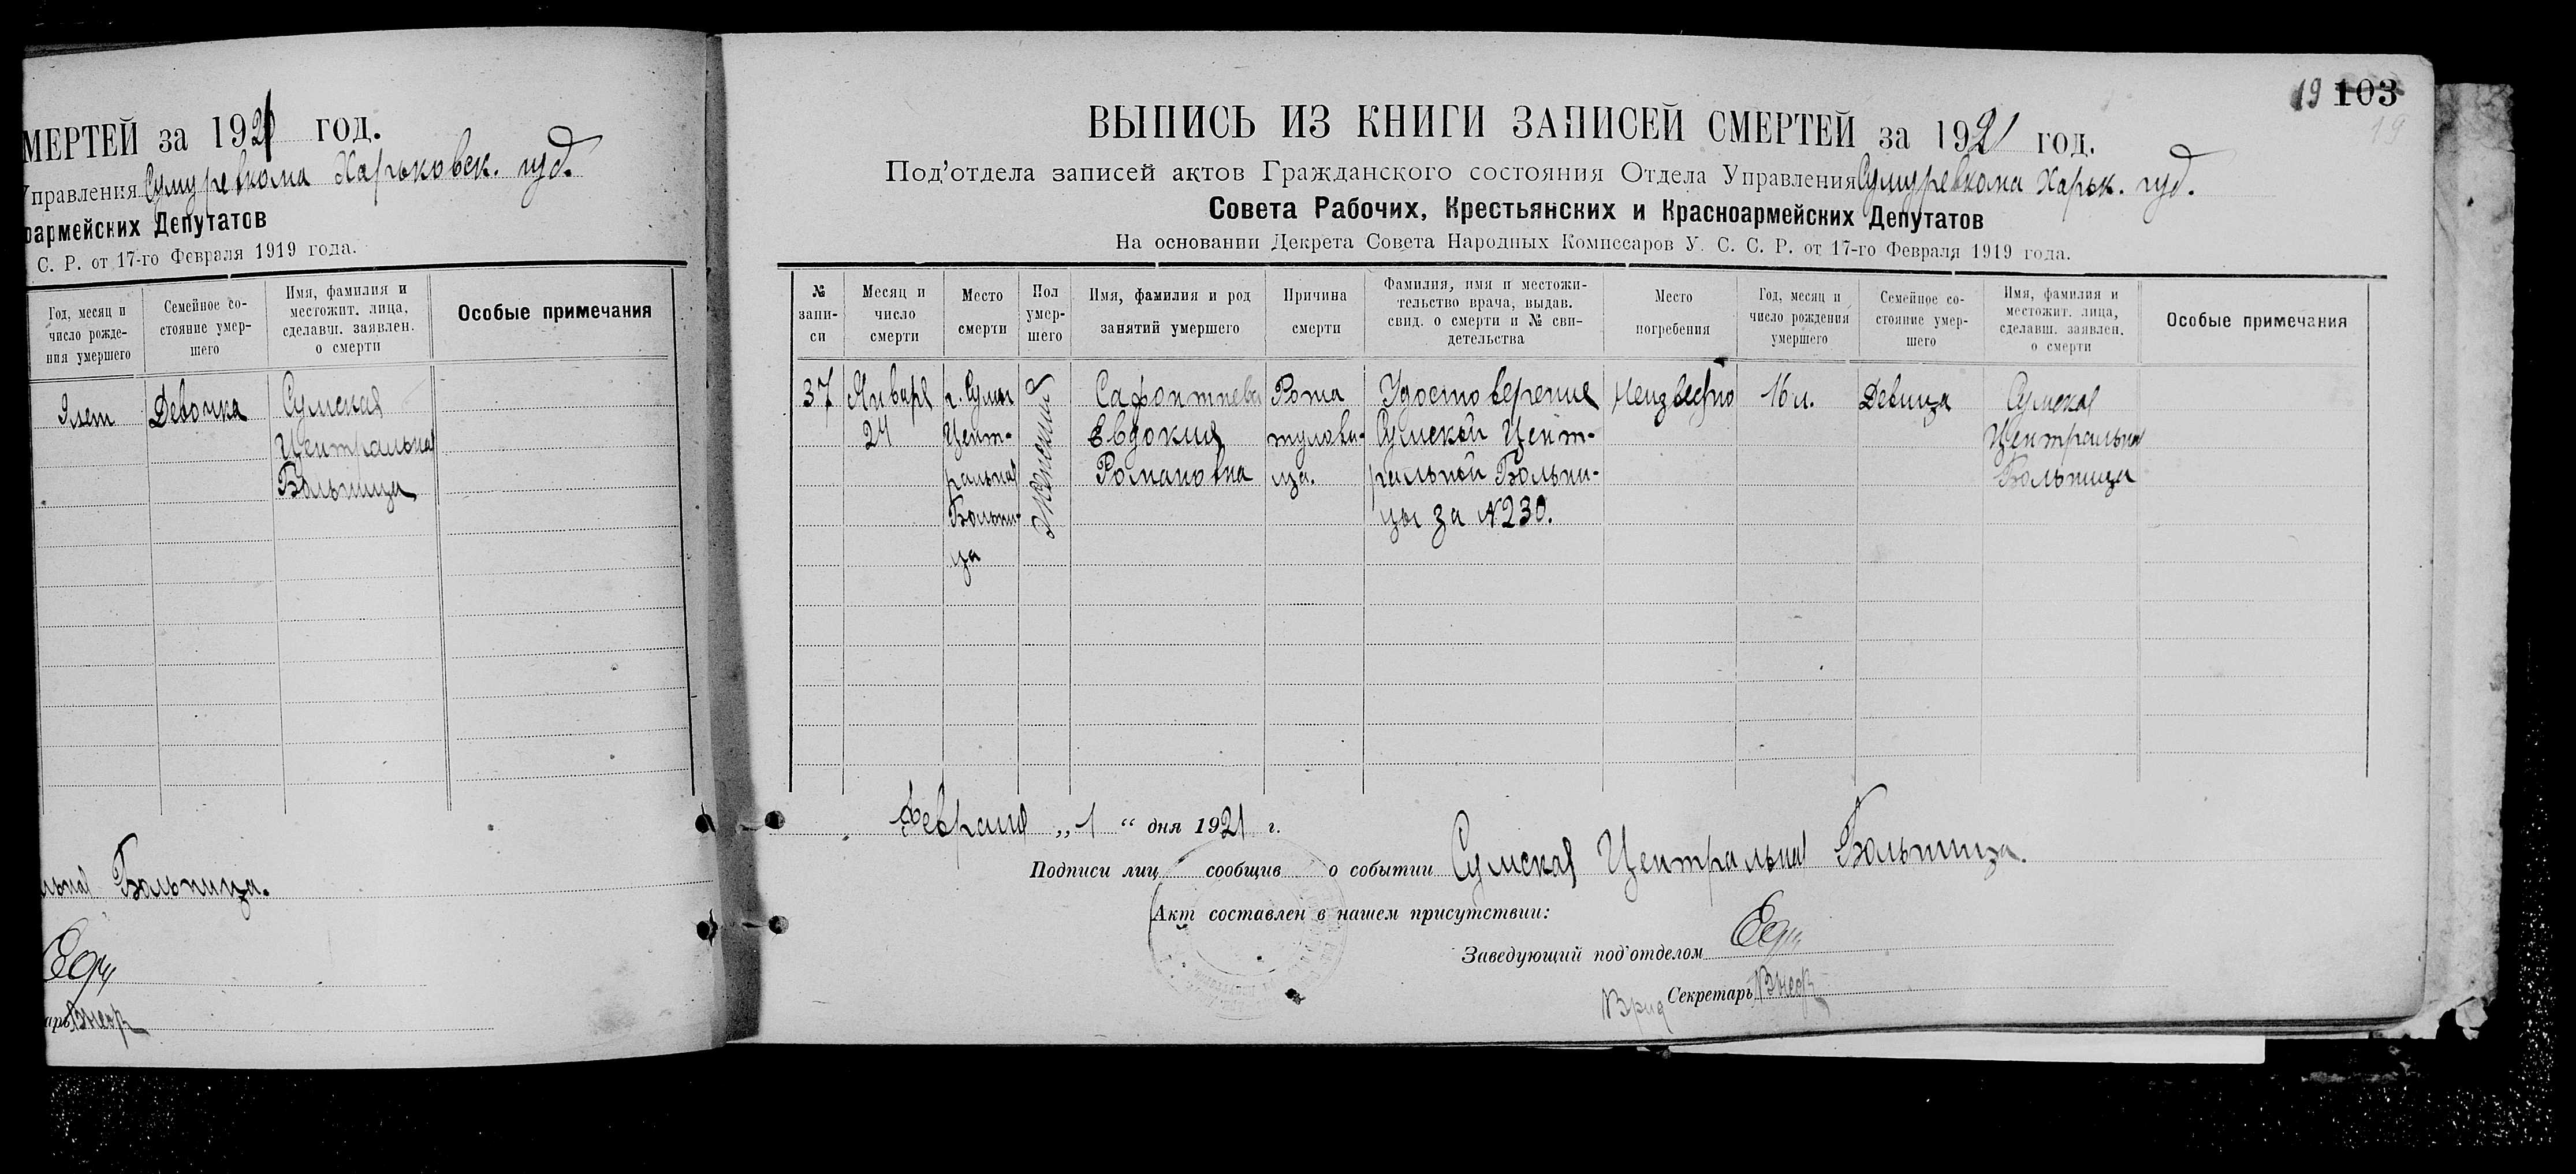 МЕРТЕЙ за 1921 год.
Управления Сумуревкома Харьковск. губ.
оармейских Депутатов
С. Р. от 17-го Февраля 1919 года.
Год, месяц и
число рожде-
ния умершего
Семейное со-
стояние умер-
шего
Имя, фамилия и
местожит. лица,
сделавш. заявлен.
о смерти
Особые примечания
лет
Девочка
Сумская
Центральная
Больница
льная Больница.
арь
19 103
19
ВЫПИСЬ ИЗ КНИГИ ЗАПИСЕЙ СМЕРТЕЙ за 1921 год.
Под'отдела записей актов Гражданского состояния Отдела Управления Сумуревкома Харьк. губ.
Совета Рабочих, Крестьянских и Красноармейских Депутатов
На основании Декрета Совета Народных Комиссаров У. С. С. Р. от 17-го Февраля 1919 года.
№
запи-
си
Месяц и
число
смерти
Место
смерти
Пол
умер-
шего
Имя, фамилия и род
занятий умершего
Причина
смерти
Фамилия, имя и местожи-
тельство врача, выдав.
свид. о смерти и № сви-
детельства
Место
погребения
Год, месяц и
число рождения
умершего
Семейное со-
стояние умер-
шего
Имя, фамилия и
местожит. лица,
сделавш. заявлен.
о смерти
Особые примечания
37
Января
24
г. Сумы
Цент-
ральная
Больни-
ца
Женский
Евдокия
Романовна
тулови-
ща.
Удостоверение
Сумской Цент-
ральной Больни-
цы за №230.
Неизвестно
16 л.
Девица
Сумская
Центральная
Больница
Февраля „1“ дня 1921 г.
Подписи лиц сообщив о событии Сумская Центральная Больница.
Акт составлен в нашем присутствии:
Заведующий под'отделом
Врид Секретарь